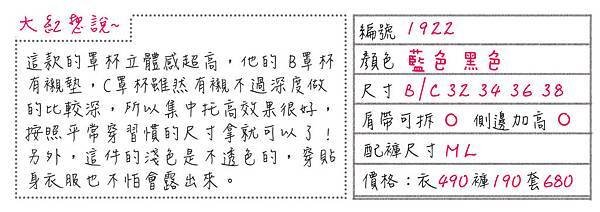 大紅想說~
這款的罩杯立體感超高，他的B罩杯
有襯墊，C罩杯雖然有襯不過深度做
的比較深，所以集中托高效果很好，
按照平常穿習慣的尺寸拿就可以了！
另外，這件的淺色是不透色的，穿貼
身衣服也不怕會露出來。
編號 1922
顏色 藍色 黑色
尺寸 B/C 32 34 36 38
肩帶可拆 O 側邊加高 O
配褲尺寸 M L
價格：衣490 褲190 套680